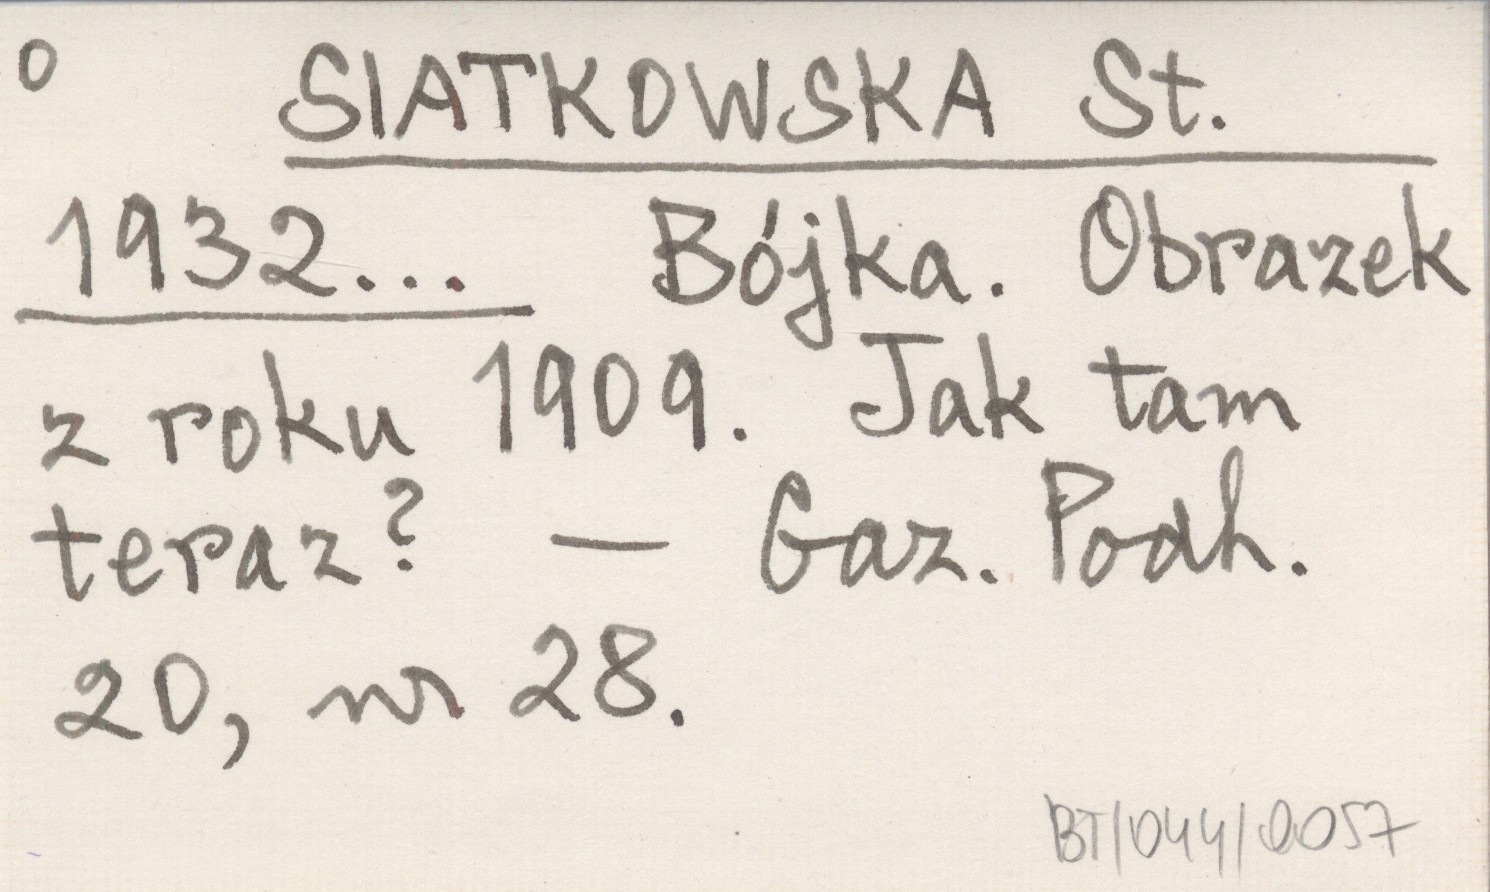 O SIATKOWSKA St.
1932... Bójka. Obrazek
z roku 1909. Jak tam
teraz? — Gaz. Podh.
20, nr 28.
BT/044/0057